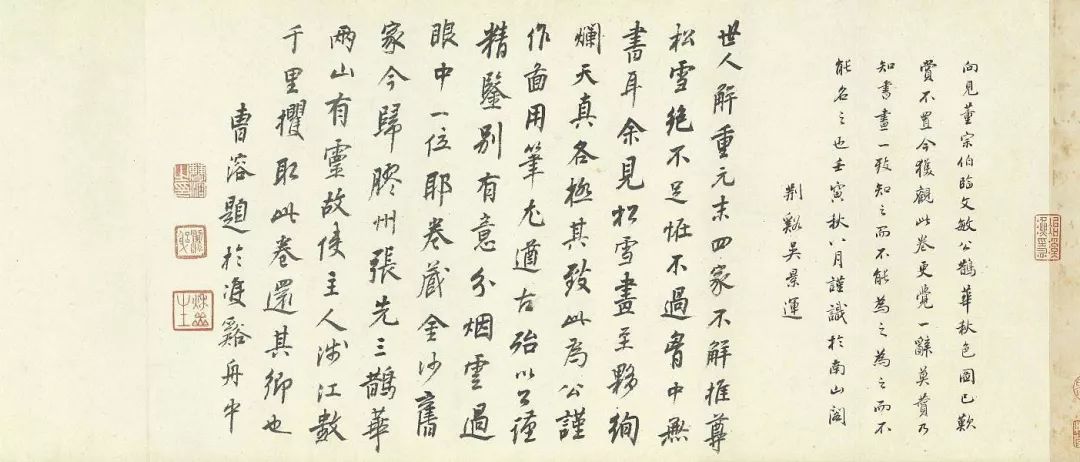 向見董宗伯臨文敏公鵲華秋色圖已歎
賞不置今獲觀此卷更覺一辭莫贊乃
知書畫一致知之而不能為之為之而不
能名之也壬寅秋八月謹識於南山閣
荆谿吳景運
世人解重元末四家不解推尊
松雪絕不足怪不過胷中無
書耳余見松雪畫至夥絢
爛天真各極其致此為公謹
作啚用筆尤遒古殆以公謹
精鑒別有意分烟雲過
眼中一位耶卷藏金沙舊
家今歸膠州張先三鵲華
兩山有靈故使主人涉江數
千里攫取此卷還其鄉也
曹溶題於雙谿舟中